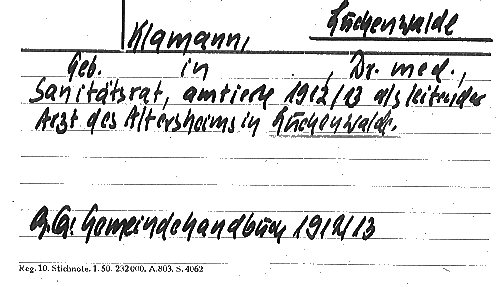 Luckenwalde
Klamann,
Geb. in , Dr. med.,
Sanitätsrat, amtierte 1912/13 als leitender
Arzt des Altersheims in Luckenwalde.
Gemeindehandbuch 1912/13
Reg. 10. Stichnote. 1. 50. 232000. A.803. S. 4062